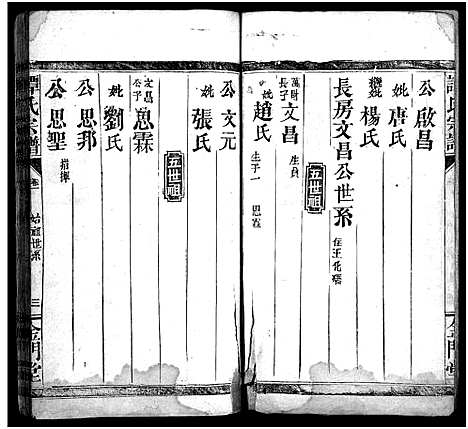 譚氏宗譜
公啟昌
妣唐氏
繼妣楊氏
長房文昌公世系 住王化壩
五世祖
萬財長子文昌 生員
妣趙氏 生子一 思霖
金門堂
公文元
妣張氏
五世祖
文昌公子思霖
妣劉氏
公思邦
公思聖 指揮
譚氏宗譜
卷一
始祖世系
三
金門堂